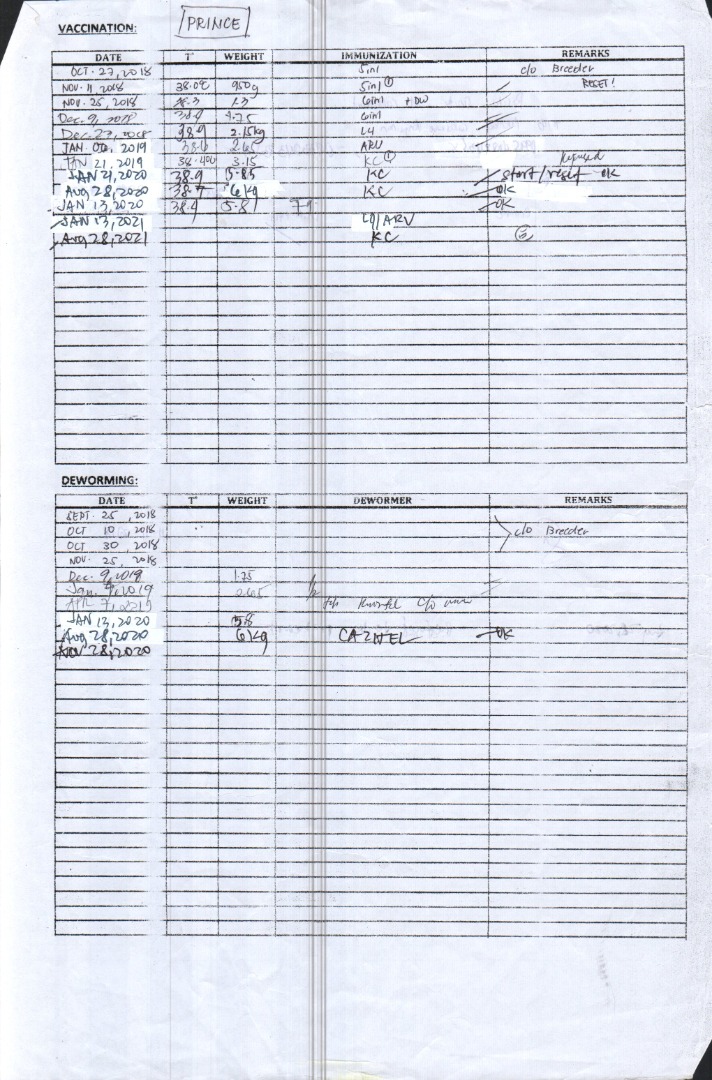 VACCINATION:
PRINCE
DATE T° WEIGHT IMMUNIZATION REMARKS
OCT. 27, 2018 5in1 c/o Breeder
NOV. 11, 2018 950g 5in1 ① RESET!
NOV. 25, 2018 1.3 6in1 + DW
Dec. 9, 2018 1.75 6in1
Dec. 27, 2018 38.9 2.15kg L4
JAN. 2019 2.65 ARV
JAN 21, 2019 3.15 KC ①
JAN 21, 2020 38.9 5.85 KC start/reset OK
Aug 28, 2020 38.7 6 kg KC OK
JAN 13, 2020 38.9 5.8 OK
JAN 13, 2021 /ARV
Aug 28, 2021 KC
DEWORMING:
DATE T° WEIGHT DEWORMER REMARKS
SEPT. 25, 2018
OCT 10, 2018 c/o Breeder
OCT 30, 2018
NOV. 25, 2018
Dec. 9, 2019 1.75
Jan. 9, 2019 2.65
APR 7, 2019 c/o
JAN 13, 2020 5.8
Aug 28, 2020 6 kg OK
NOV 28, 2020